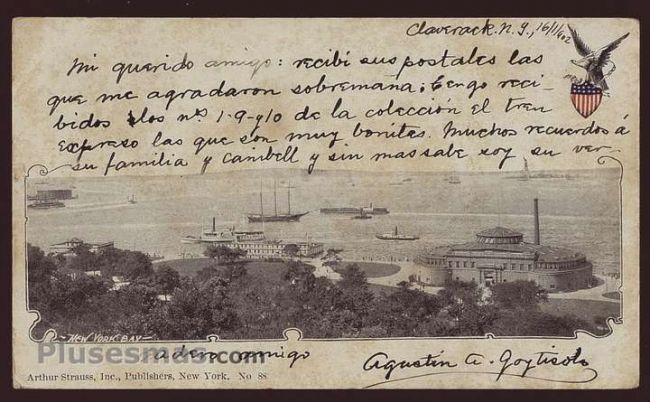 Claverack. N. Y., 16/1/902
Mi querido amigo: recibí sus postales las
que me agradaron sobremaña; tengo reci-
bidos los nºs 1-9-y10 de la colección el tren
expreso las que son muy bonitas. Muchos recuerdos á
su familia y Cambell y sin mas sabe soy su ver-
NEW YORK BAY
Plusesman.com
adero amigo
Agustín A. Goytisolo
Arthur Strauss, Inc., Publishers, New York. No 88